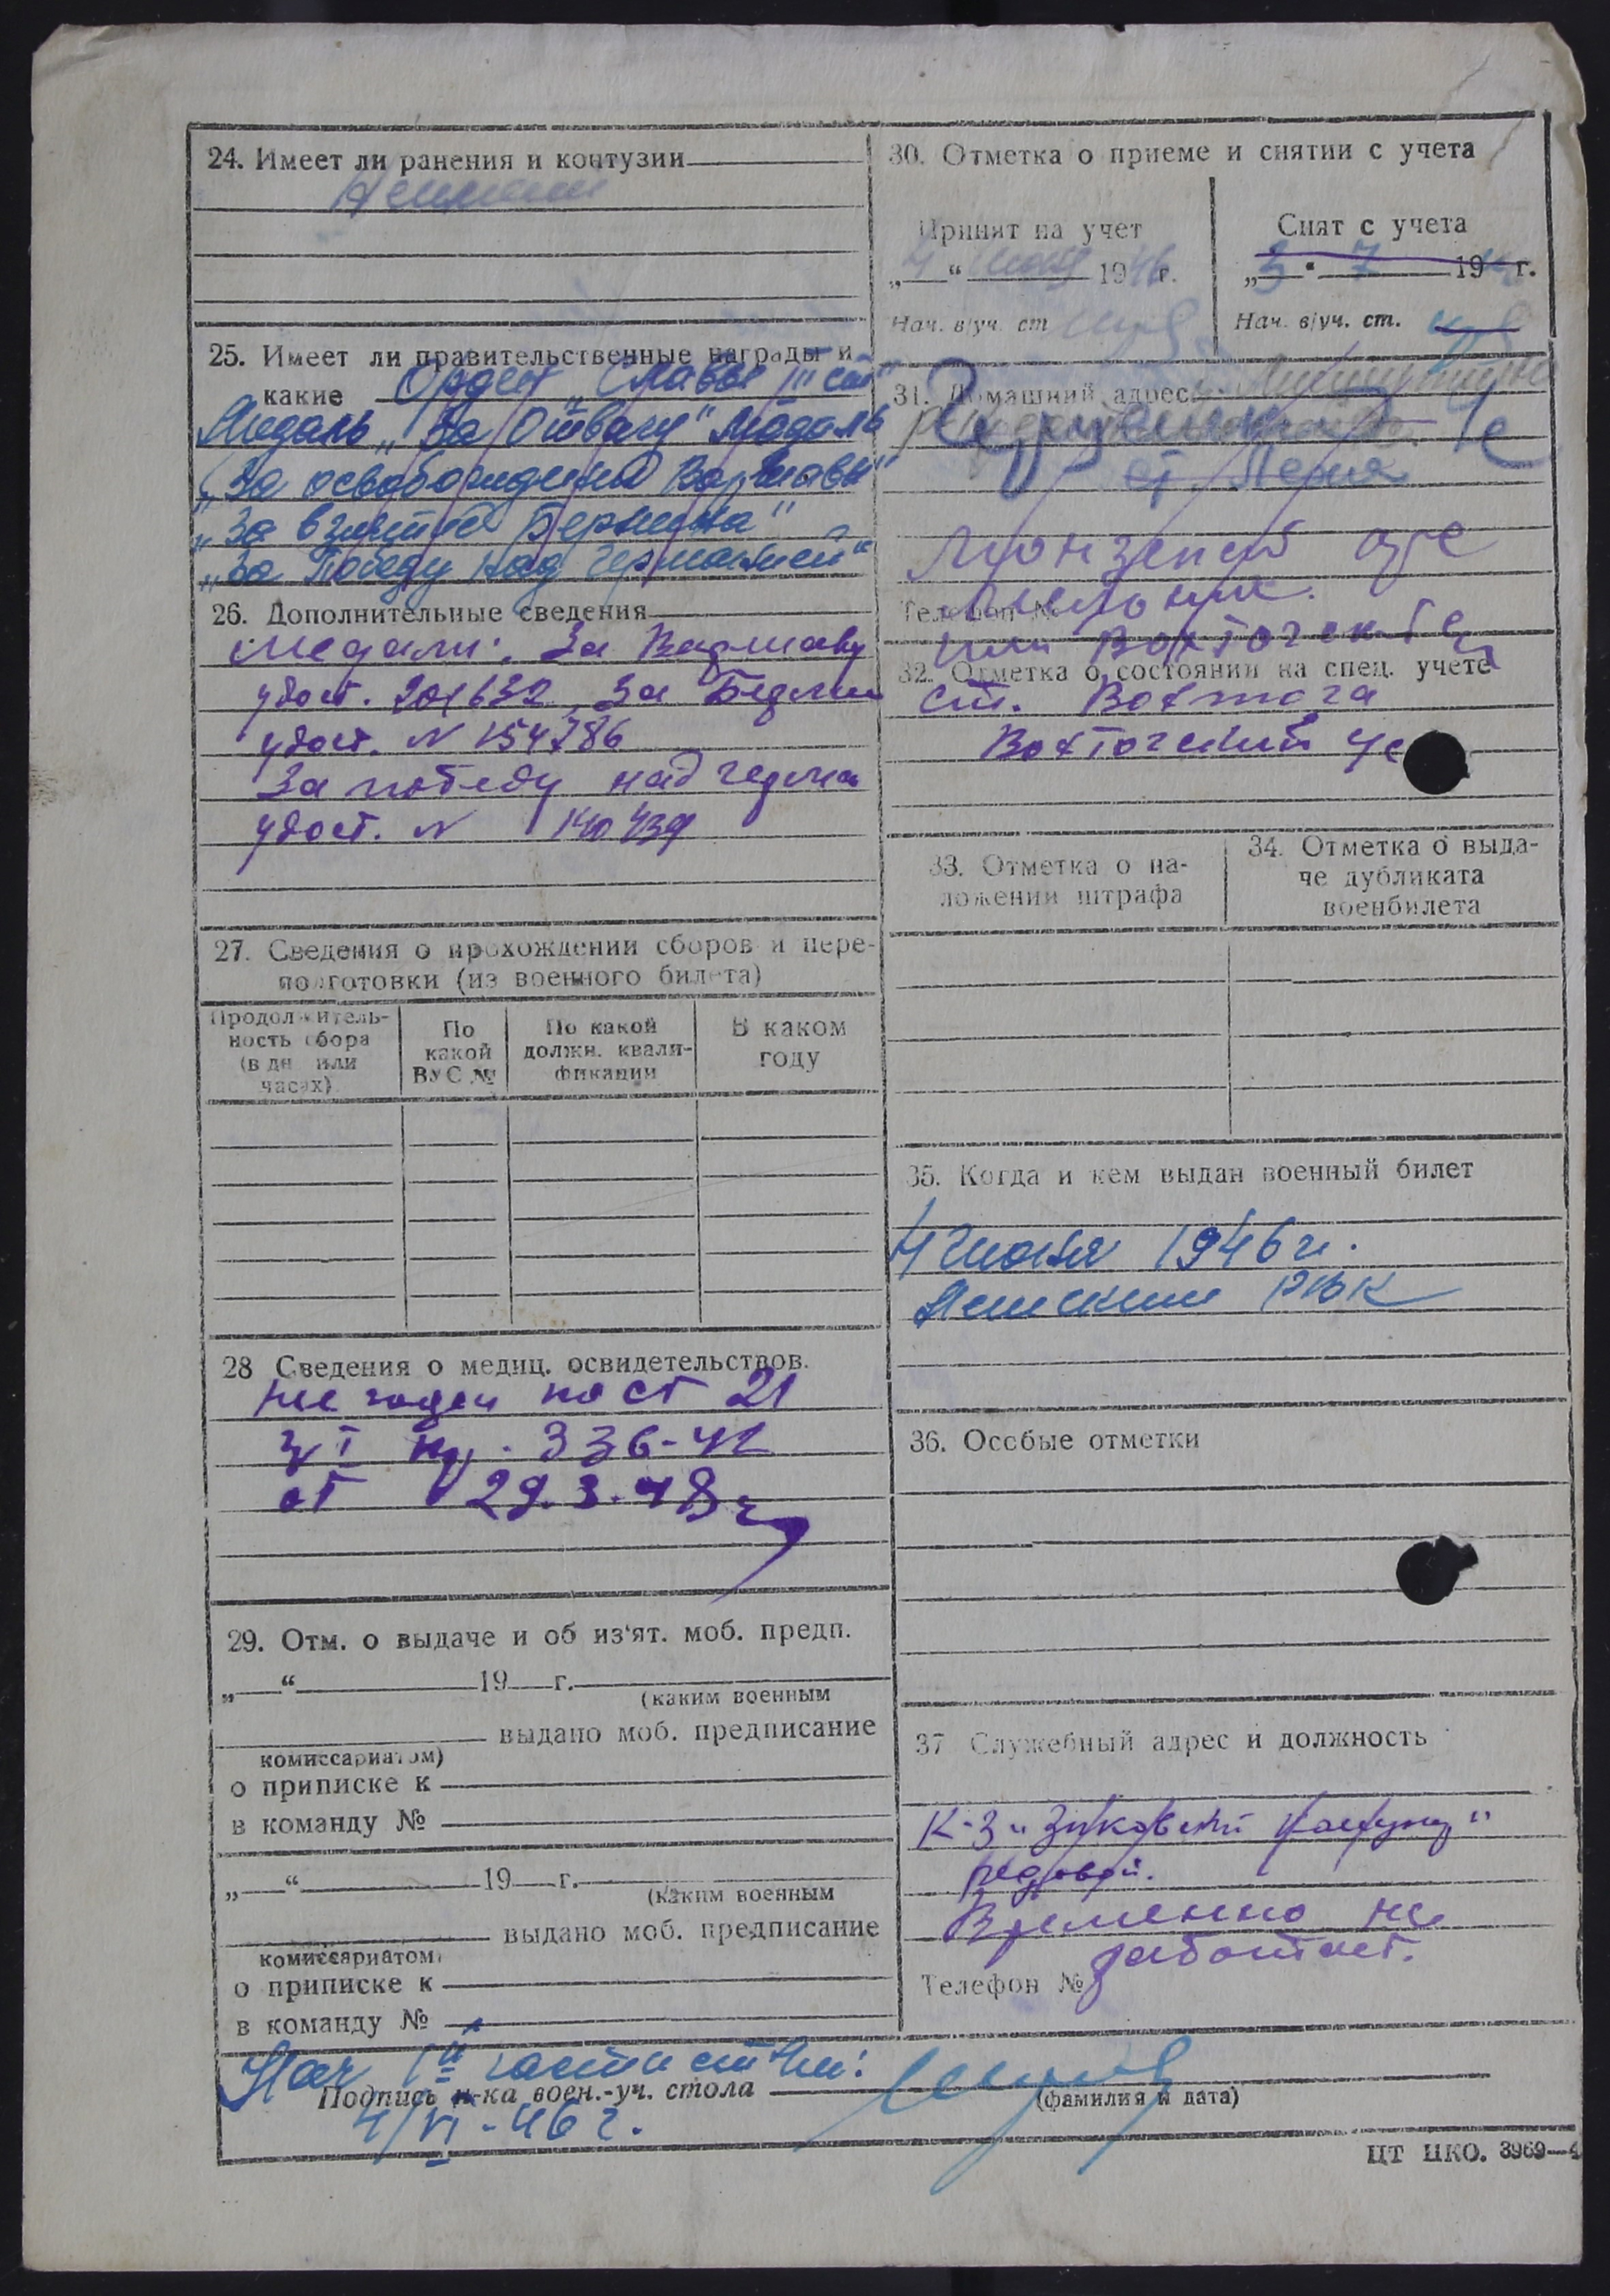 24. Имеет ли ранения и контузии
25. Имеет ли правительственные награды и
какие Орден „Славы III ст“
Медаль „За Отвагу“ Медаль
„За освобождение Варшавы“
„За взятие Берлина“
„За Победу над Германией“
26. Дополнительные сведения
Медали: За Варшаву
удост. 201632, За Берлин
удост. N 154786
За победу над герман
удост. N
27. Сведения о прохождении сборов и пере-
подготовки (из военного билета)
Продолжитель-
ность сбора
(в дн или
часах)
По
какой
ВУС №
По какой
должн. квали-
фикации
В каком
году
28 Сведения о медиц. освидетельствов.
Не годен по ст 21
гр I пр. 336-42
от 29.3.48г
29. Отм. о выдаче и об из‘ят. моб. предп.
„ “ 19 г.
(каким военным
выдано моб. предписание
комиссариатом)
о приписке к
в команду №
„ “ 19 г.
(каким военным
выдано моб. предписание
комиссариатом)
о приписке к
в команду №
30. Отметка о приеме и снятии с учета
Принят на учет
„4“ июня 1946г.
Нач. в/уч. ст
Снят с учета
„3“ 7 19 г.
Нач. в/уч. ст.
31. Домашний адрес
ст. Лежа
Монзенский
Телефон №
32. Отметка о состоянии на спец. учете
ст. Вохтога
Вохтогский
33. Отметка о на-
ложении штрафа
34. Отметка о выда-
че дубликата
военбилета
35. Когда и кем выдан военный билет
4 Июня 1946 г.
РВК
36. Особые отметки
37 Служебный адрес и должность
К-з „Зыковский
рядовой.
Временно не
работает.
Телефон №
Нач Iй части
Подпись н-ка воен.-уч. стола
(фамилия и дата)
4/VI-46 г.
ЦТ НКО. 3969—4